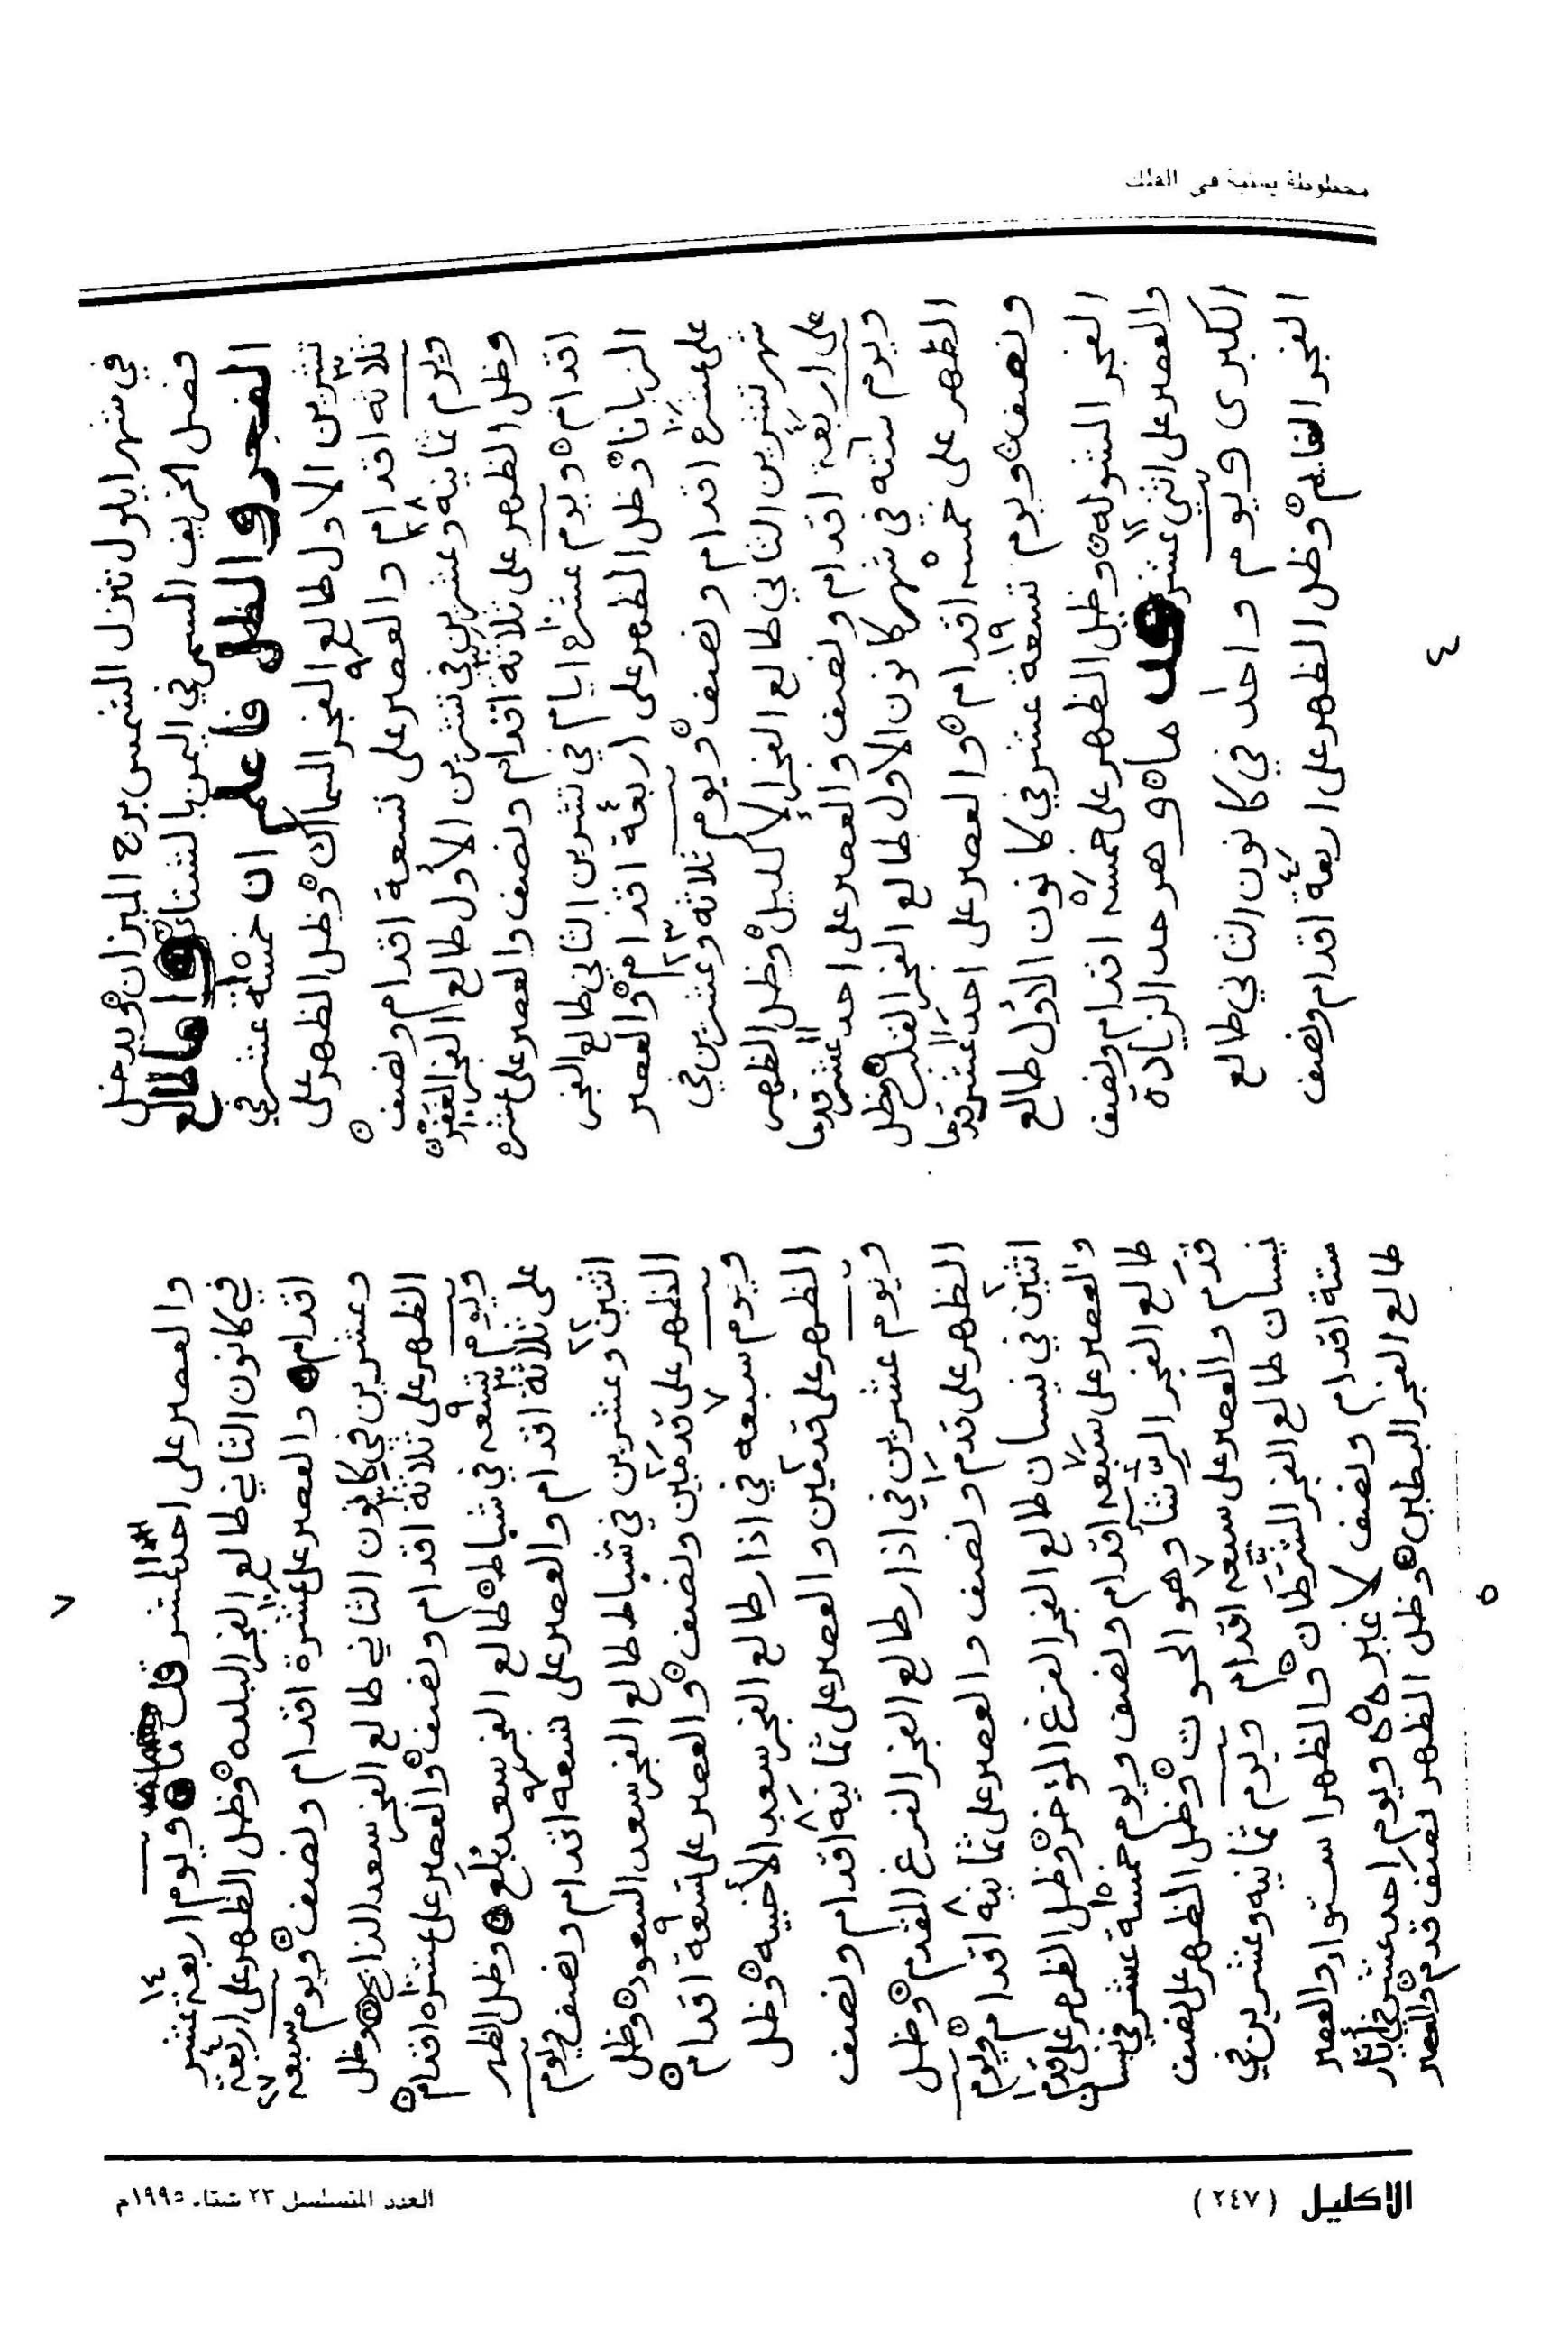 مخطوطة يمنية في الفلك
في شهر ايلول تنزل الشمس برج الميزان ويدخل
فصل الخريف المسمى في اليمن بالشتاء واما طالع
الفجر والظل فاعلم ان خمسة عشر في
تشرين الاول طالع الفجر السماك وظل الظهر على
ثلاثه اقدام والعصر على تسعة اقدام ونصف
ويوم ثمانيه وعشرين في تشرين الأول طالع الفجر الغفر
وظل الظهر على ثلاثة اقدام ونصف والعصر على عشره
اقدام ويوم عشرة ايام في تشرين الثاني طالع الفجر
الزبانا وظل الظهر على اربعة اقدام والعصر
على عشرة اقدام ونصف ويوم ثلاثه وعشرين في
شهر تشرين الثاني طالع الفجر الاكليل وظل الظهر
على اربعة اقدام ونصف والعصر على احد عشر قدما
ويوم سته في شهر كانون الاول طالع الفجر القلب وظل
الظهر على خمسه اقدام والعصر على احد عشر قدما
ونصف ويوم تسعة عشر في كانون الأول طالع
الفجر الشوله وظل الظهر على خمسه اقدام ونصف
والعصر على اثني عشر قدما وهو حد الزيادة
الكبرى ويوم واحد في كانون الثاني طالع
الفجر النعايم وظل الظهر على اربعة اقدام ونصف
٤
٧
والعصر على احد عشر قدما ويوم اربعة عشر ١٤
في كانون الثاني طالع الفجر البلده وظل الظهر على اربعة
اقدام والعصر على عشرة اقدام ونصف ويوم سبعه ٢٧
وعشرين في كانون الثاني طالع الفجر سعد الذابح وظل
الظهر على ثلاثة اقدام ونصف والعصر على عشره اقدام
ويوم تسعه في شباط طالع الفجر سعد بلع وظل الظهر
على ثلاثة اقدام والعصر على تسعه اقدام ونصف ويوم
اثنين وعشرين في شباط طالع الفجر سعد السعود وظل
الظهر على قدمين ونصف والعصر على تسعة اقدام
ويوم سبعه في اذار طالع الفجر سعد الأخبيه وظل
الظهر على قدمين والعصر على ثمانيه اقدام ونصف
ويوم عشرين في اذار طالع الفجر الفرغ المقدم وظل
الظهر على قدم ونصف والعصر على ثمانيه اقدام ويوم
اثنين في نيسان طالع الفجر الفرغ المؤخر وظل الظهر على قدم
والعصر على سبعه اقدام ونصف ويوم خمسة عشر في نيسان
طالع الفجر الرشا وهو الحوت وظل الظهر على نصف
قدم والعصر على سبعه اقدام ويوم ثمانيه وعشرين في
نيسان طالع الفجر الشرطان والظهر استوا والعصر
ستة اقدام ونصف لا غير ويوم احد عشر في أيار
طالع الفجر البطين وظل الظهر نصف قدم والعصر
٥
الاكليل (٢٤٧)
العدد المتسلسل ٢٣ شتاء ١٩٩٥م